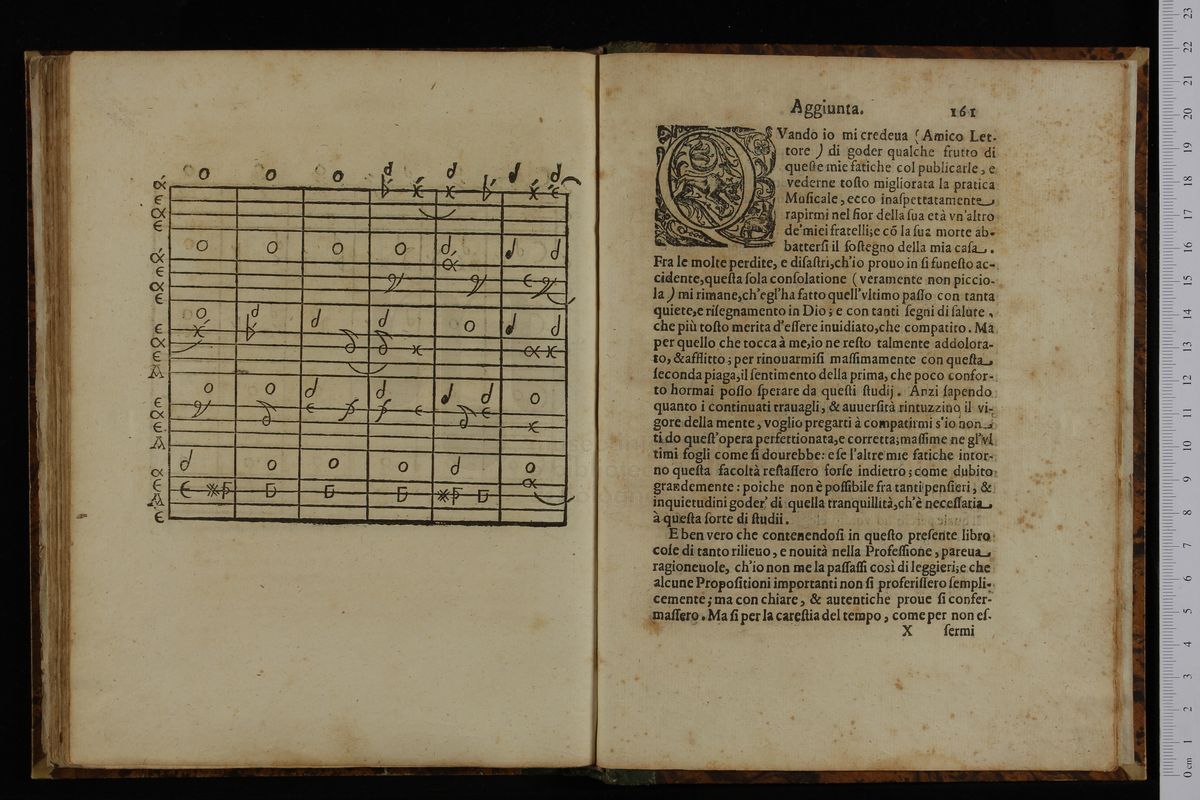 Aggiunta. 161
QVando io mi credeua ( Amico Let-
tore ) di goder qualche frutto di
queſte mie fatiche col publicarle, e
vederne toſto migliorata la pratica
Muſicale, ecco inaſpettatamente
rapirmi nel fior della ſua età vn'altro
de'miei fratelli;e cõ la ſua morte ab-
batterſi il ſoſtegno della mia caſa.
Fra le molte perdite, e diſaſtri,ch'io prouo in ſi funeſto ac-
cidente,queſta ſola conſolatione ( veramente non piccio-
la ) mi rimane,ch'egl'ha fatto quell'vltimo paſſo con tanta
quiete,e riſegnamento in Dio; e con tanti ſegni di ſalute,
che più toſto merita d'eſſere inuidiato,che compatito. Ma
per quello che tocca à me,io ne reſto talmente addolora-
to, &afflitto; per rinouarmiſi maſſimamente con queſta
ſeconda piaga,il ſentimento della prima, che poco confor-
to hormai poſſo ſperare da queſti ſtudij. Anzi ſapendo
quanto i continuati trauagli, & auuerſità rintuzzino il vi-
gore della mente, voglio pregarti à compatirmi s'io non
ti do queſt'opera perfettionata,e corretta;maſſime ne gl'vl
timi fogli come ſi dourebbe: eſe l'altre mie fatiche intor-
no queſta facoltà reſtaſſero forſe indietro; come dubito
grandemente: poiche non è poſſibile fra tanti penſieri, &
inquietudini goder' di quella tranquillità,ch'è neceſſaria
à queſta ſorte di ſtudii.
E ben vero che contenendoſi in queſto preſente libro
coſe di tanto rilieuo, e nouità nella Profeſſione, pareua
ragioneuole, ch'io non me la paſſaſſi così di leggieri;e che
alcune Propoſitioni importanti non ſi proferiſſero ſempli-
cemente; ma con chiare, & autentiche proue ſi confer-
maſſero. Ma ſi per la careſtia del tempo, come per non eſ-
X ſermi